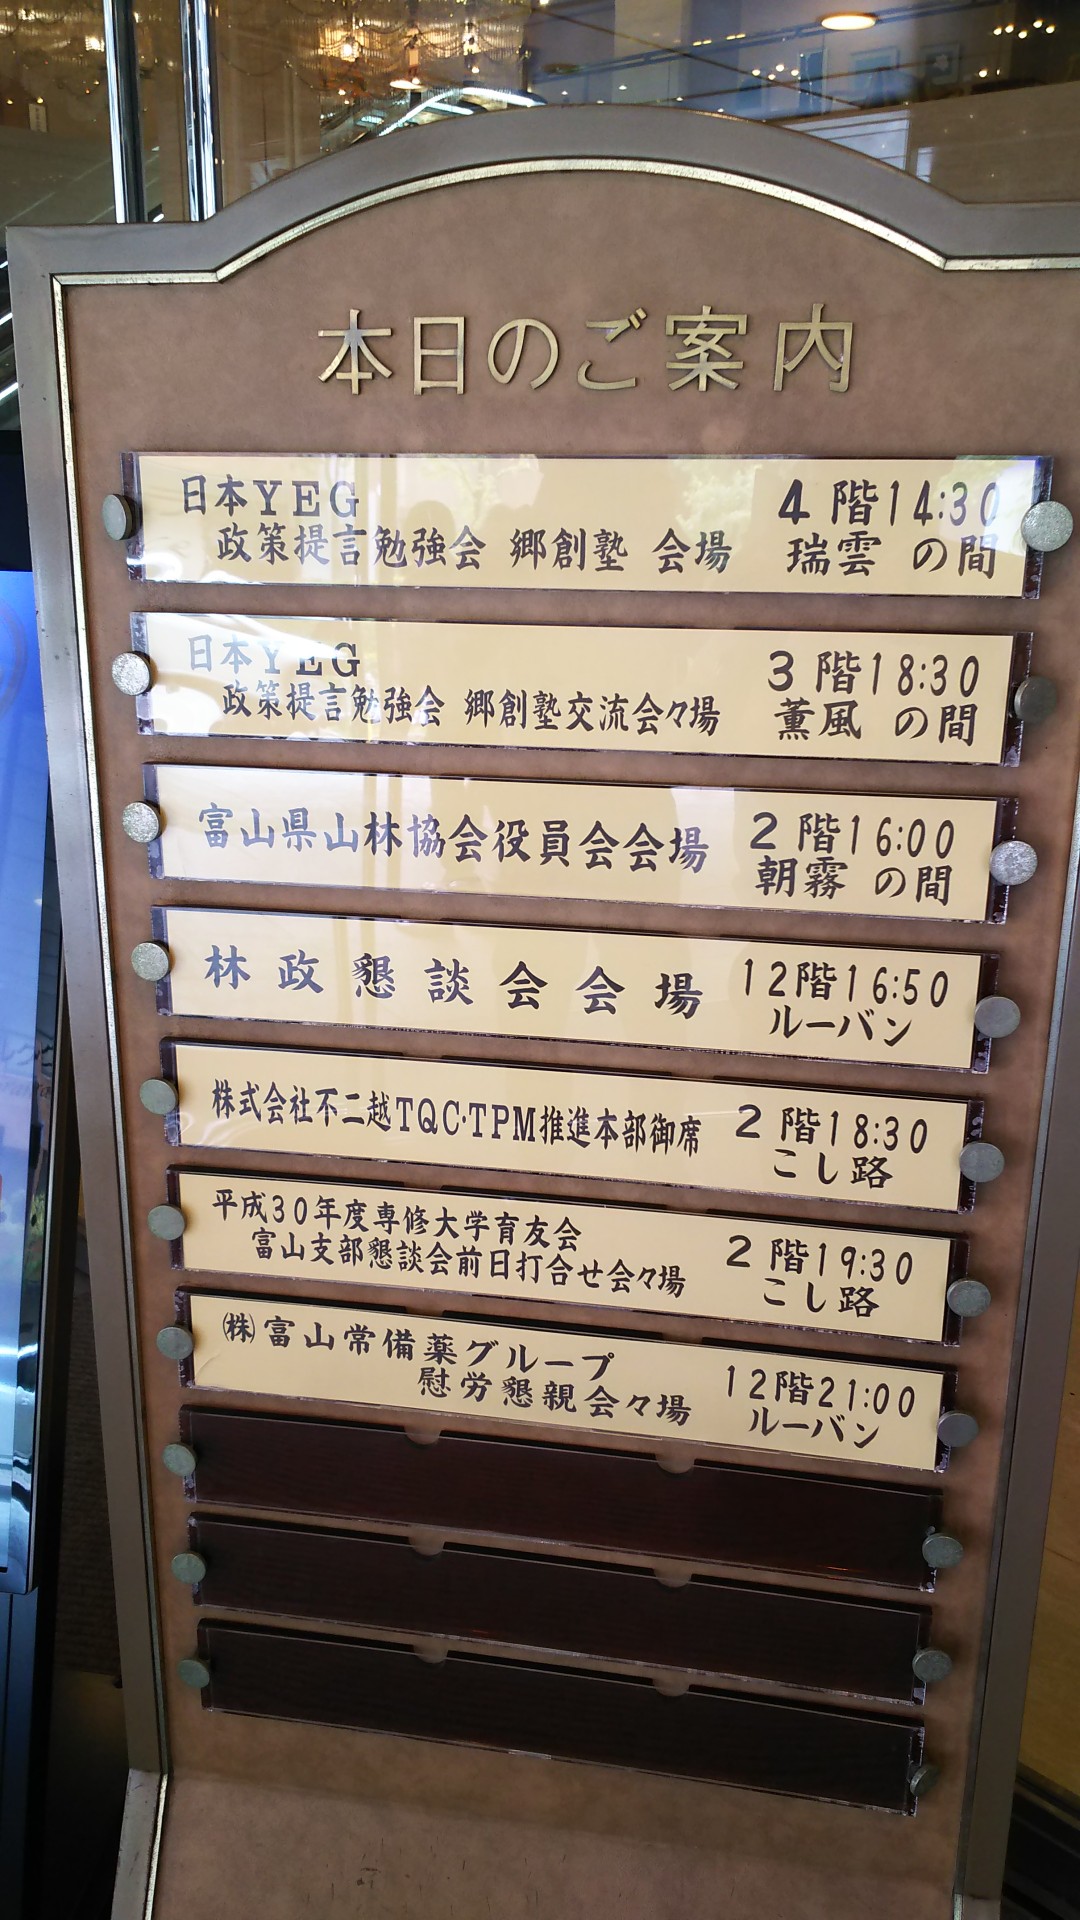 本日のご案内
日本YEG
政策提言勉強会 郷創塾 会場
4階14:30
瑞雲の間
日本YEG
政策提言勉強会 郷創塾交流会々場
3階18:30
薫風の間
富山県山林協会役員会会場
2階16:00
朝霧の間
林政懇談会会場
12階16:50
ルーバン
株式会社不二越TQC・TPM推進本部御席
2階18:30
こし路
平成30年度専修大学育友会
富山支部懇談会前日打合せ会々場
2階19:30
こし路
㈱富山常備薬グループ
慰労懇親会々場
12階21:00
ルーバン